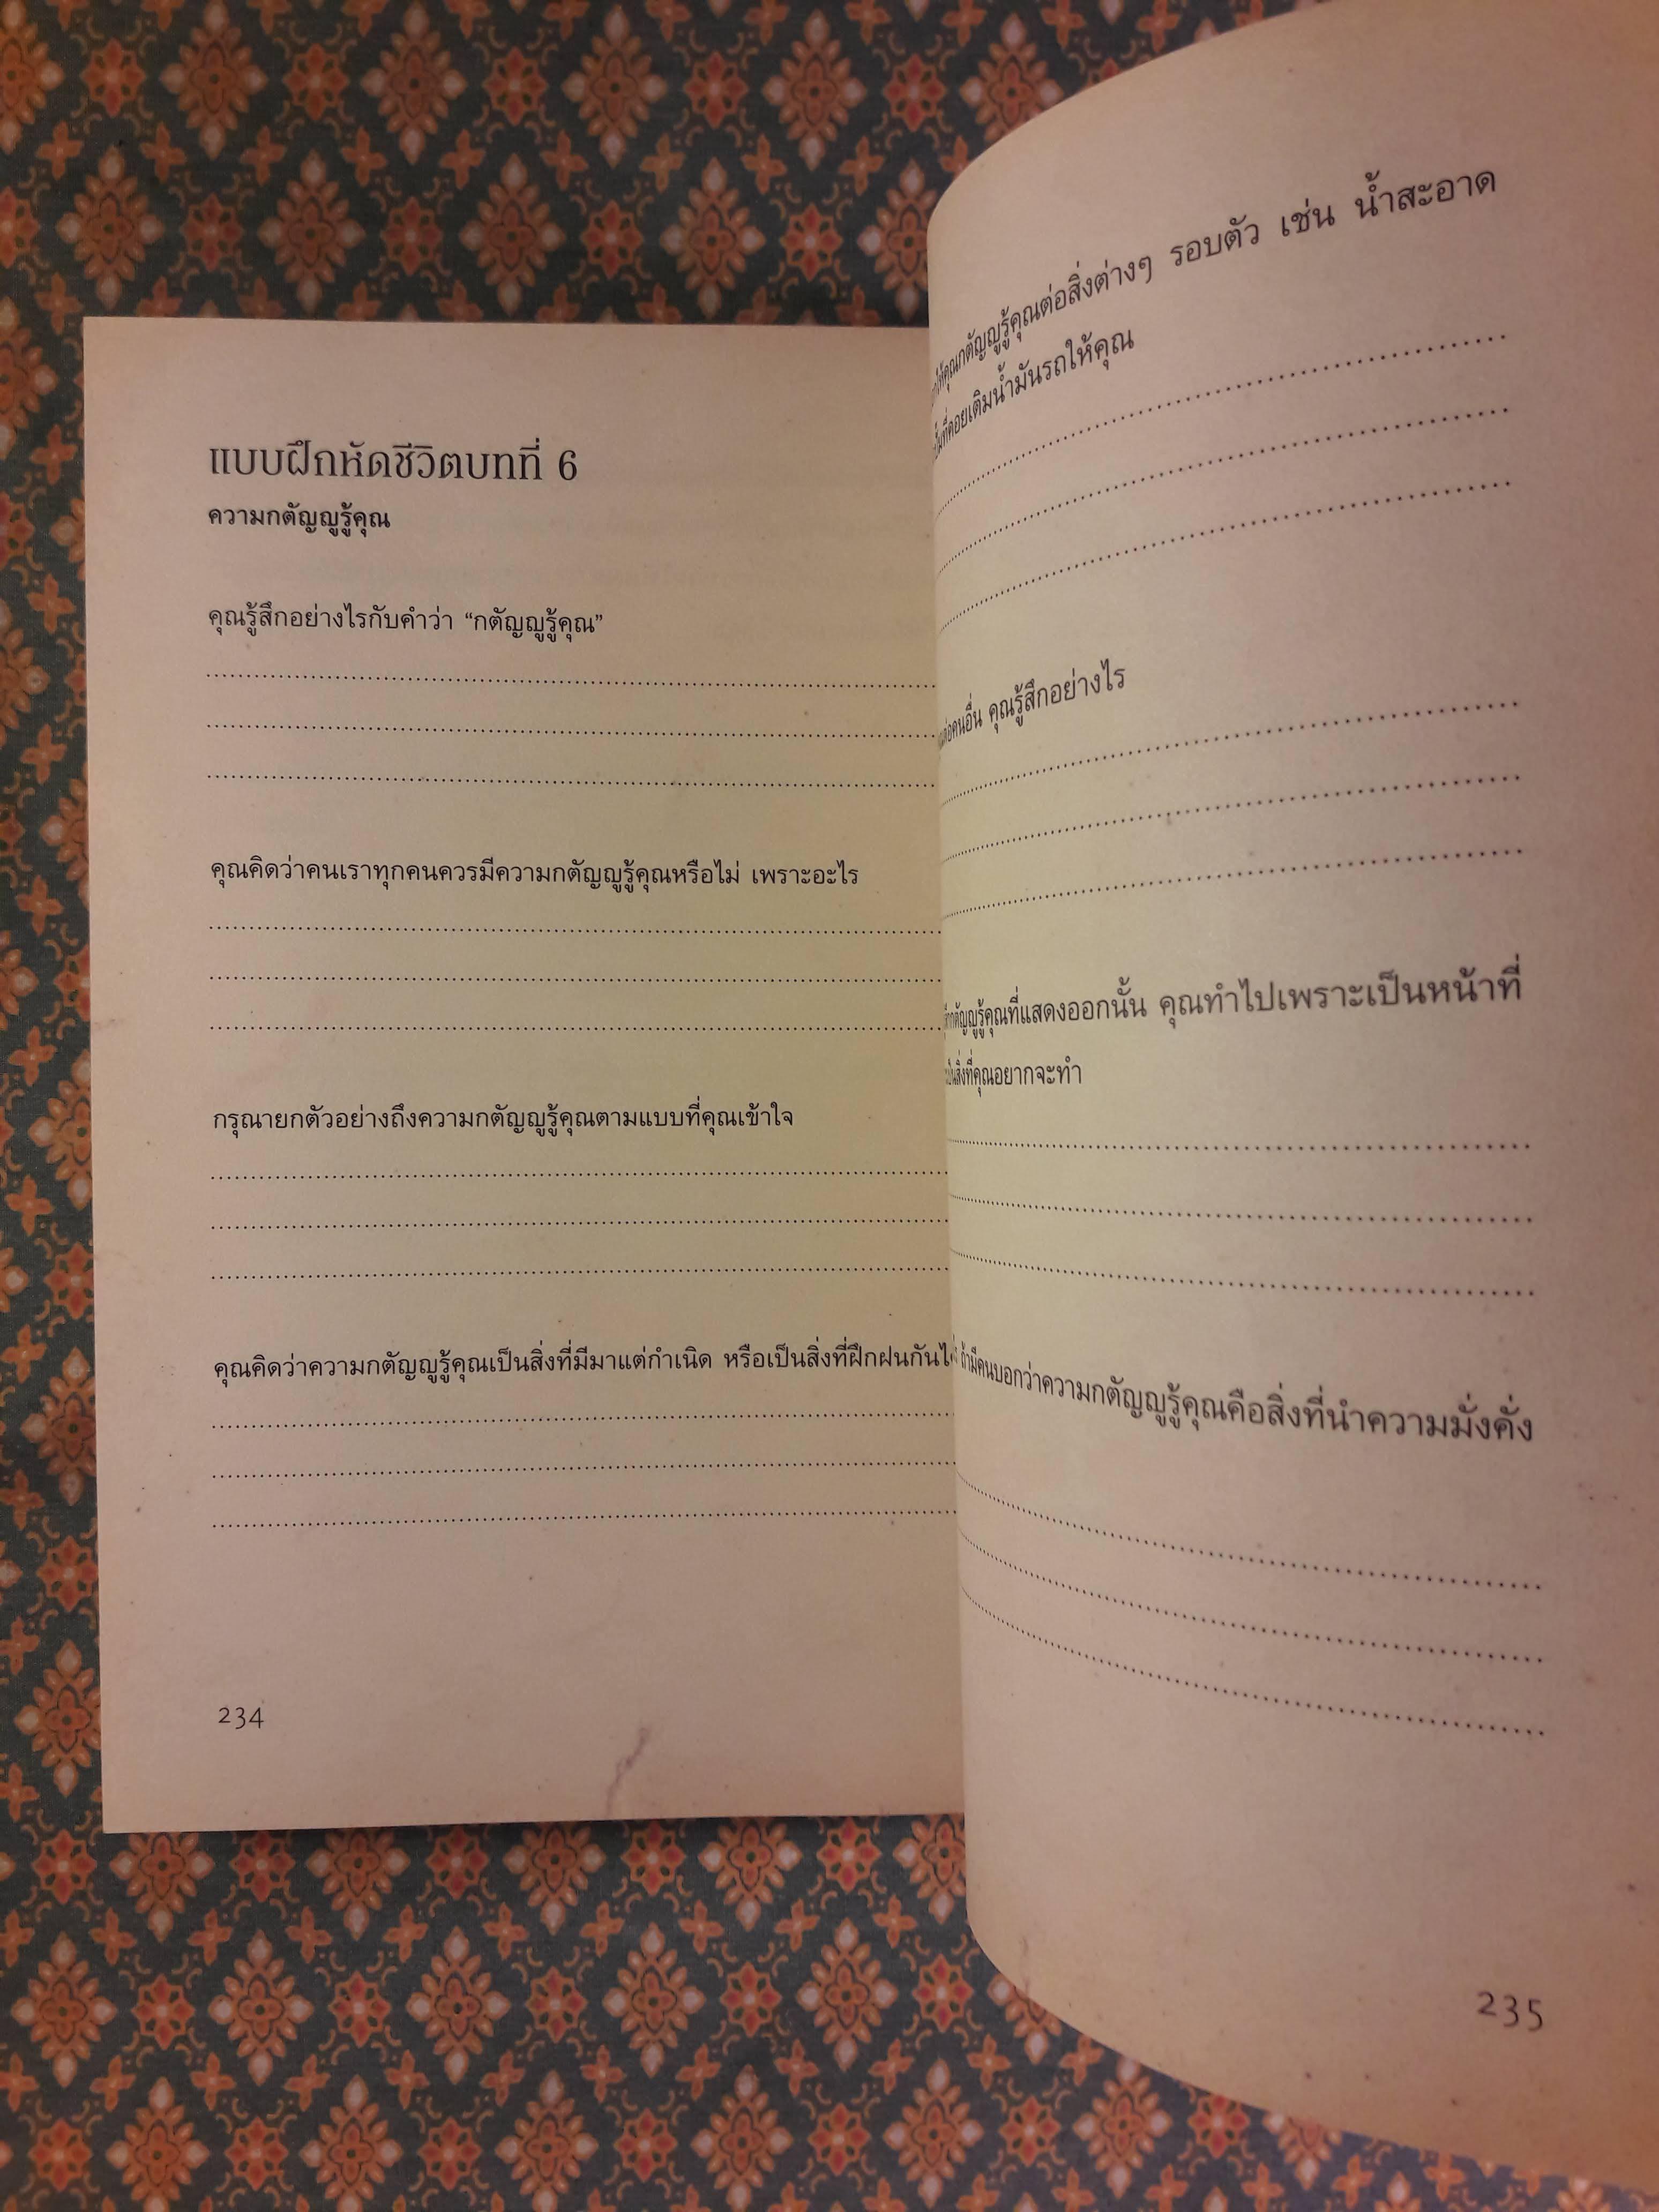 แบบฝึกหัดชีวิตบทที่ 6
ความกตัญญูรู้คุณ
คุณรู้สึกอย่างไรกับคำว่า “กตัญญูรู้คุณ”
คุณคิดว่าคนเราทุกคนควรมีความกตัญญูรู้คุณหรือไม่ เพราะอะไร
กรุณายกตัวอย่างถึงความกตัญญูรู้คุณตามแบบที่คุณเข้าใจ
คุณคิดว่าความกตัญญูรู้คุณเป็นสิ่งที่มีมาแต่กำเนิด หรือเป็นสิ่งที่ฝึกฝนกัน
234
ให้คุณกตัญญูรู้คุณต่อสิ่งต่างๆ รอบตัว เช่น น้ำสะอาด
ที่คอยเติมน้ำมันรถให้คุณ
ต่อคนอื่น คุณรู้สึกอย่างไร
กตัญญูรู้คุณที่แสดงออกนั้น คุณทำไปเพราะเป็นหน้าที่
เป็นสิ่งที่คุณอยากจะทำ
ถ้ามีคนบอกว่าความกตัญญูรู้คุณคือสิ่งที่นำความมั่งคั่ง
235